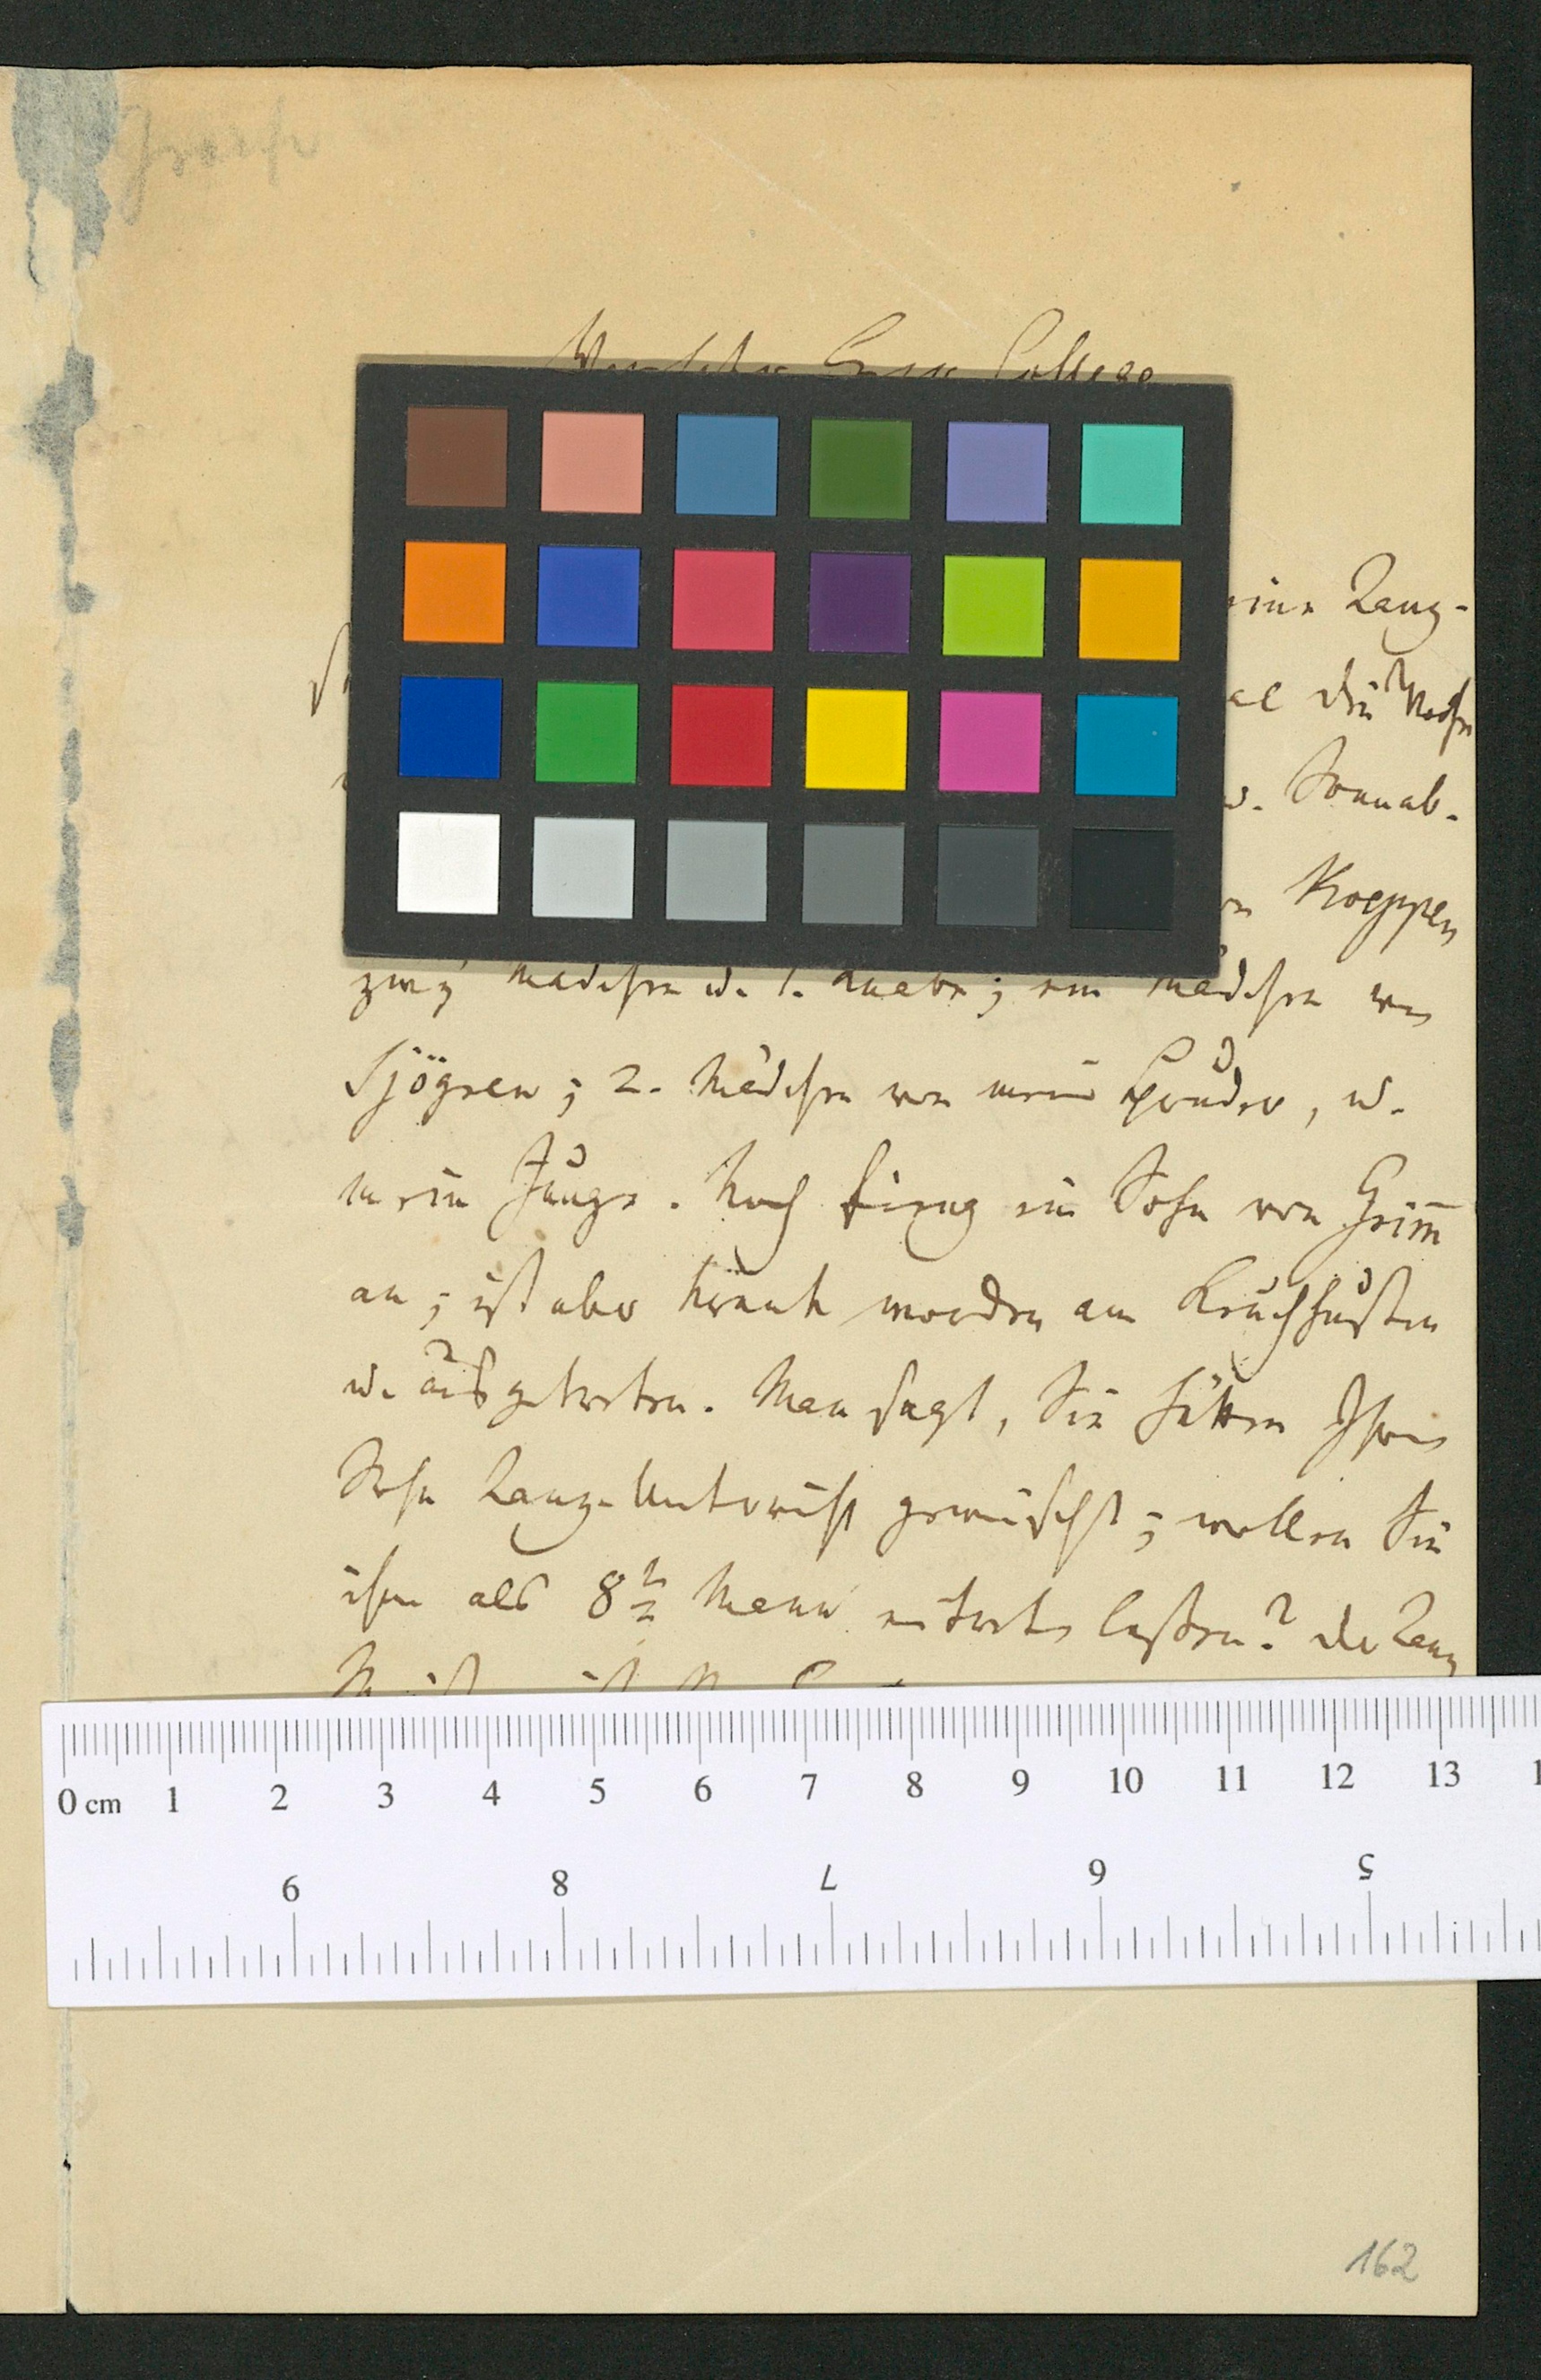 Graefe
Verehrter Herr College
eine Tanz-
al die Woche
u. Sonnab-
Koeppen
zwey Mädchen u. 1. Knabe; ein Mädchen von
Sjögren; 2. Mädchen von mein Bruder, u.
mein Junge. Noch fieng ein Sohn von Grim̅
an; ist aber krank worden am Keuchhusten
u. ausgetreten. Man sagt, Sie hätten Ihrem
Sohn Tanz-Unterricht gewünscht; wollen Sie
ihn als 8tn Mann eintreten lassen? der Tanz
0 cm 1 2 3 4 5 6 7 8 9 10 11 12 13
9 8 7 6 5
162